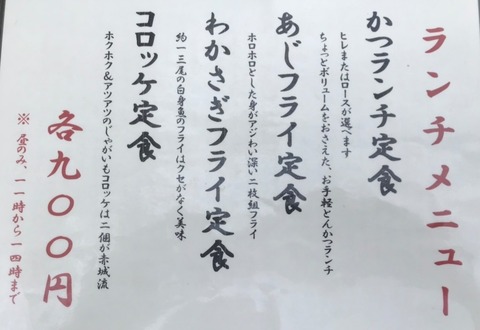 ランチメニュー
かつランチ定食
ヒレまたはロースが選べます
ちょっとボリュームをおさえた、お手軽とんかつランチ
あじフライ定食
ホロホロとした身がアジわい深い二枚組フライ
わかさぎフライ定食
約一三尾の白身魚のフライはクセがなく美味
コロッケ定食
ホクホク＆アツアツのじゃがいもコロッケは二個が赤城流
各九〇〇円
※ 昼のみ、一一時から一四時まで